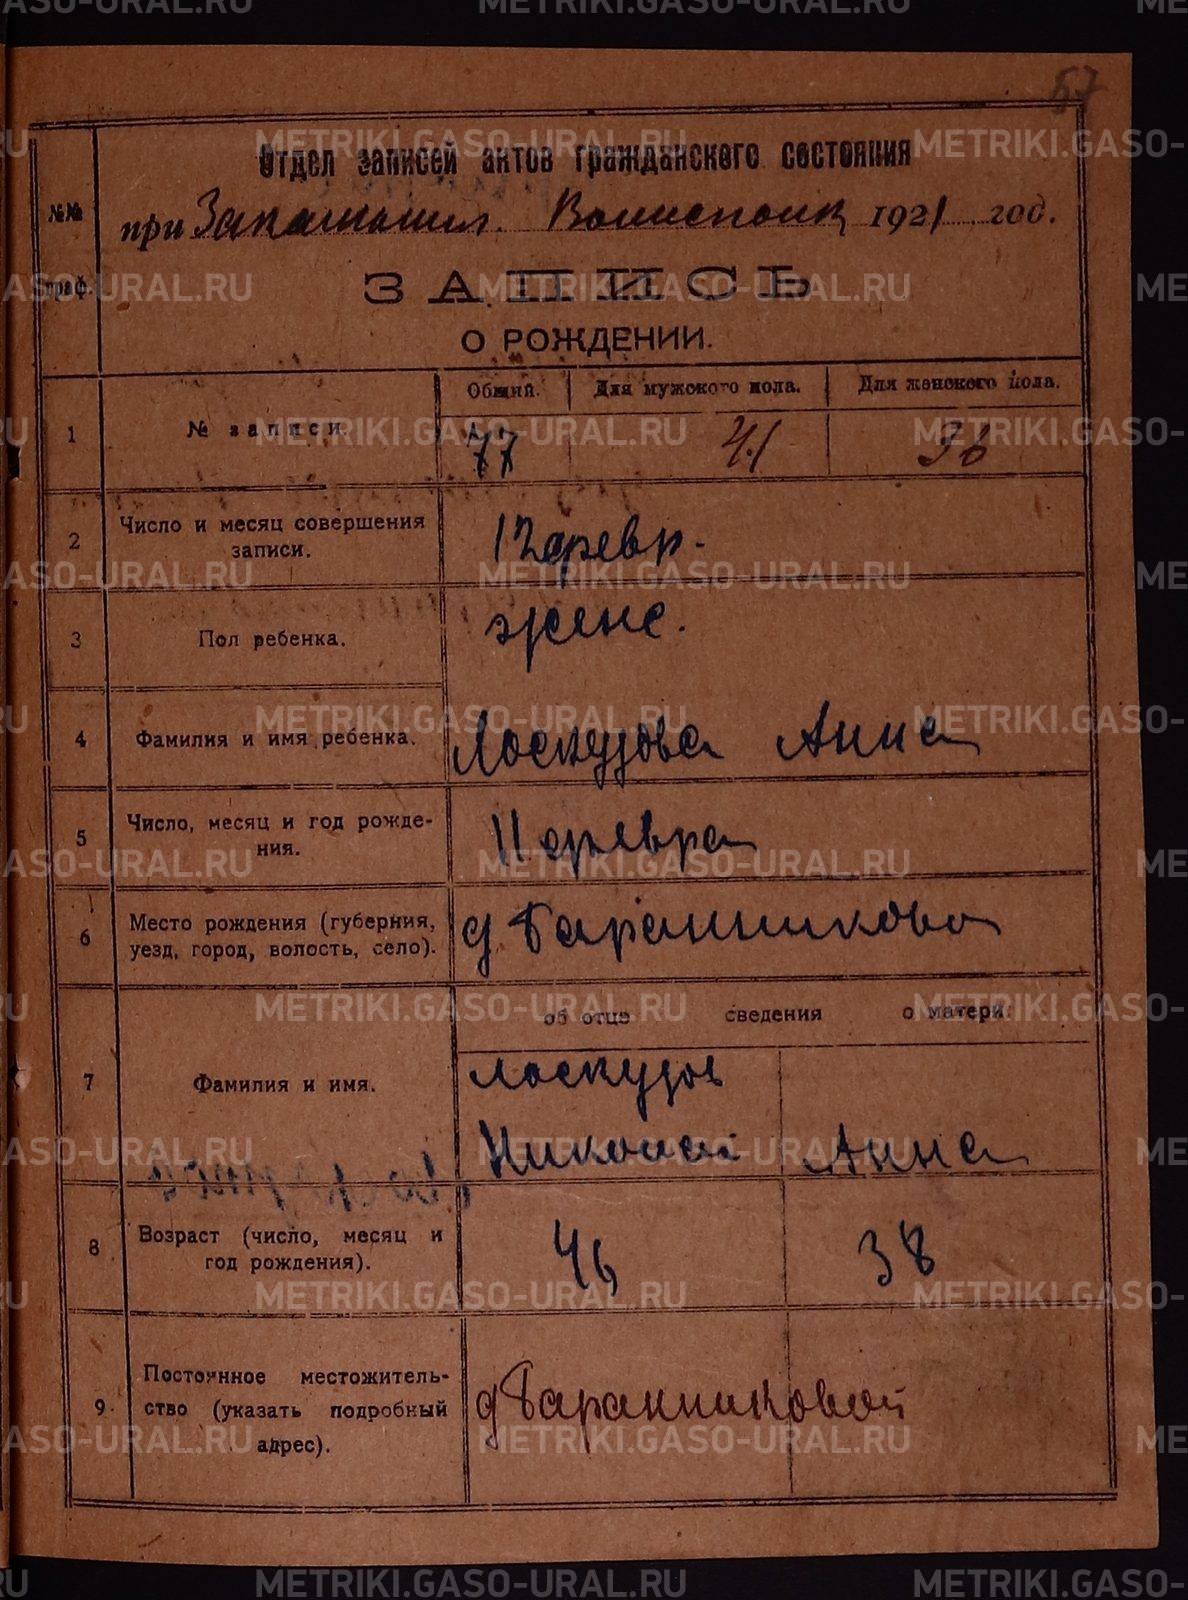 57
Отдел записей актов гражданского состояния
№№
при Закамышл. Волисполк 1921 год.
граф.
ЗАПИСЬ
О РОЖДЕНИИ.
Общий. Для мужского пола. Для женского пола.
1 № записи 77 41 36
2 Число и месяц совершения записи. 12 февр.
3 Пол ребенка. женс.
4 Фамилия и имя ребенка. Лоскутова Анна
5 Число, месяц и год рожде-
ния. 11 февра
6 Место рождения (губерния,
уезд, город, волость, село). д Баранникова
об отце сведения о матери:
7 Фамилия и имя. Лоскутов
Николай Анна
8 Возраст (число, месяц и
год рождения). 46 38
9 Постоянное местожитель-
ство (указать подробный
адрес). д Баранниковой
METRIKI.GASO-URAL.RU